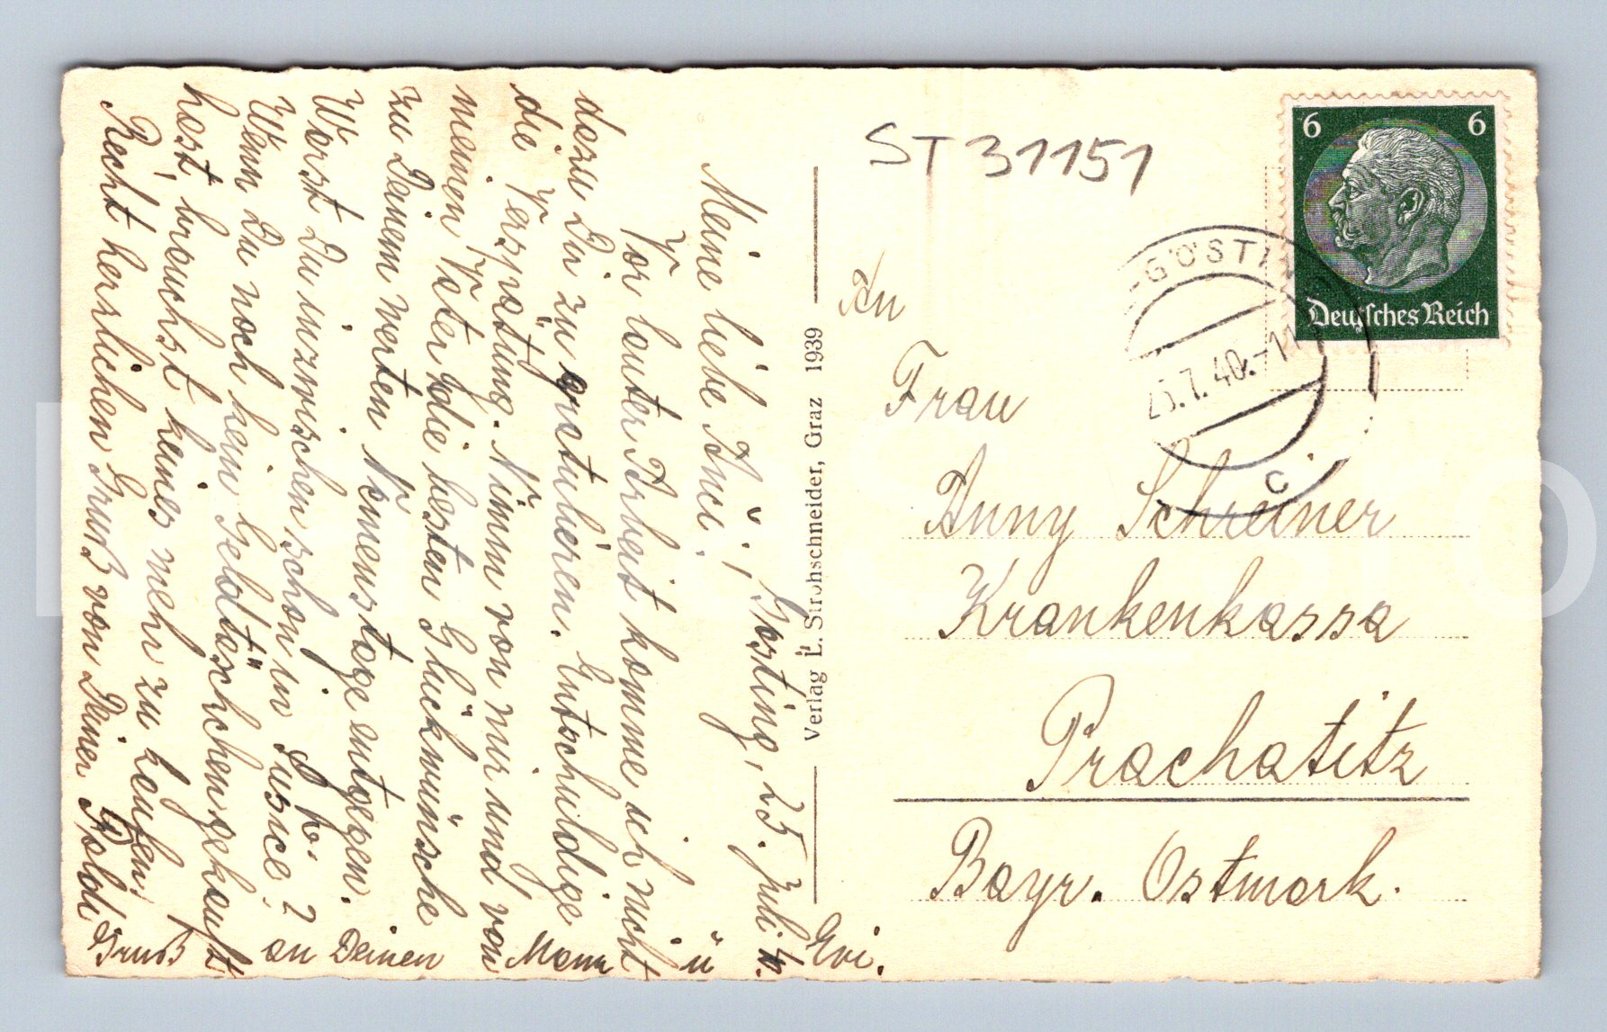 Gösting, 25. Juli 40.
Meine liebe Anci!
Vor lauter Arbeit komme ich nicht
dazu Dir zu gratulieren. Entschuldige
die Verspätung. Nimm von mir und von
meinem Vater die besten Glückwünsche
zu Deinem werten Namenstage entgegen.
Warst Du inzwischen schon in Aussee?
Wenn Du noch kein Geldtäschchen gekauft
hast, brauchst keines mehr zu kaufen!
Recht herzlichen Gruß von Deiner Poldi
Gruß an Deinen Mann u Evi.
Verlag L. Strohschneider, Graz 1939
ST 31151
6 6
Deutsches Reich
-GÖSTI
25.7.40.-11
c
An
Frau
Anny Schreiner
Krankenkassa
Prachatitz
Bayr. Ostmark.